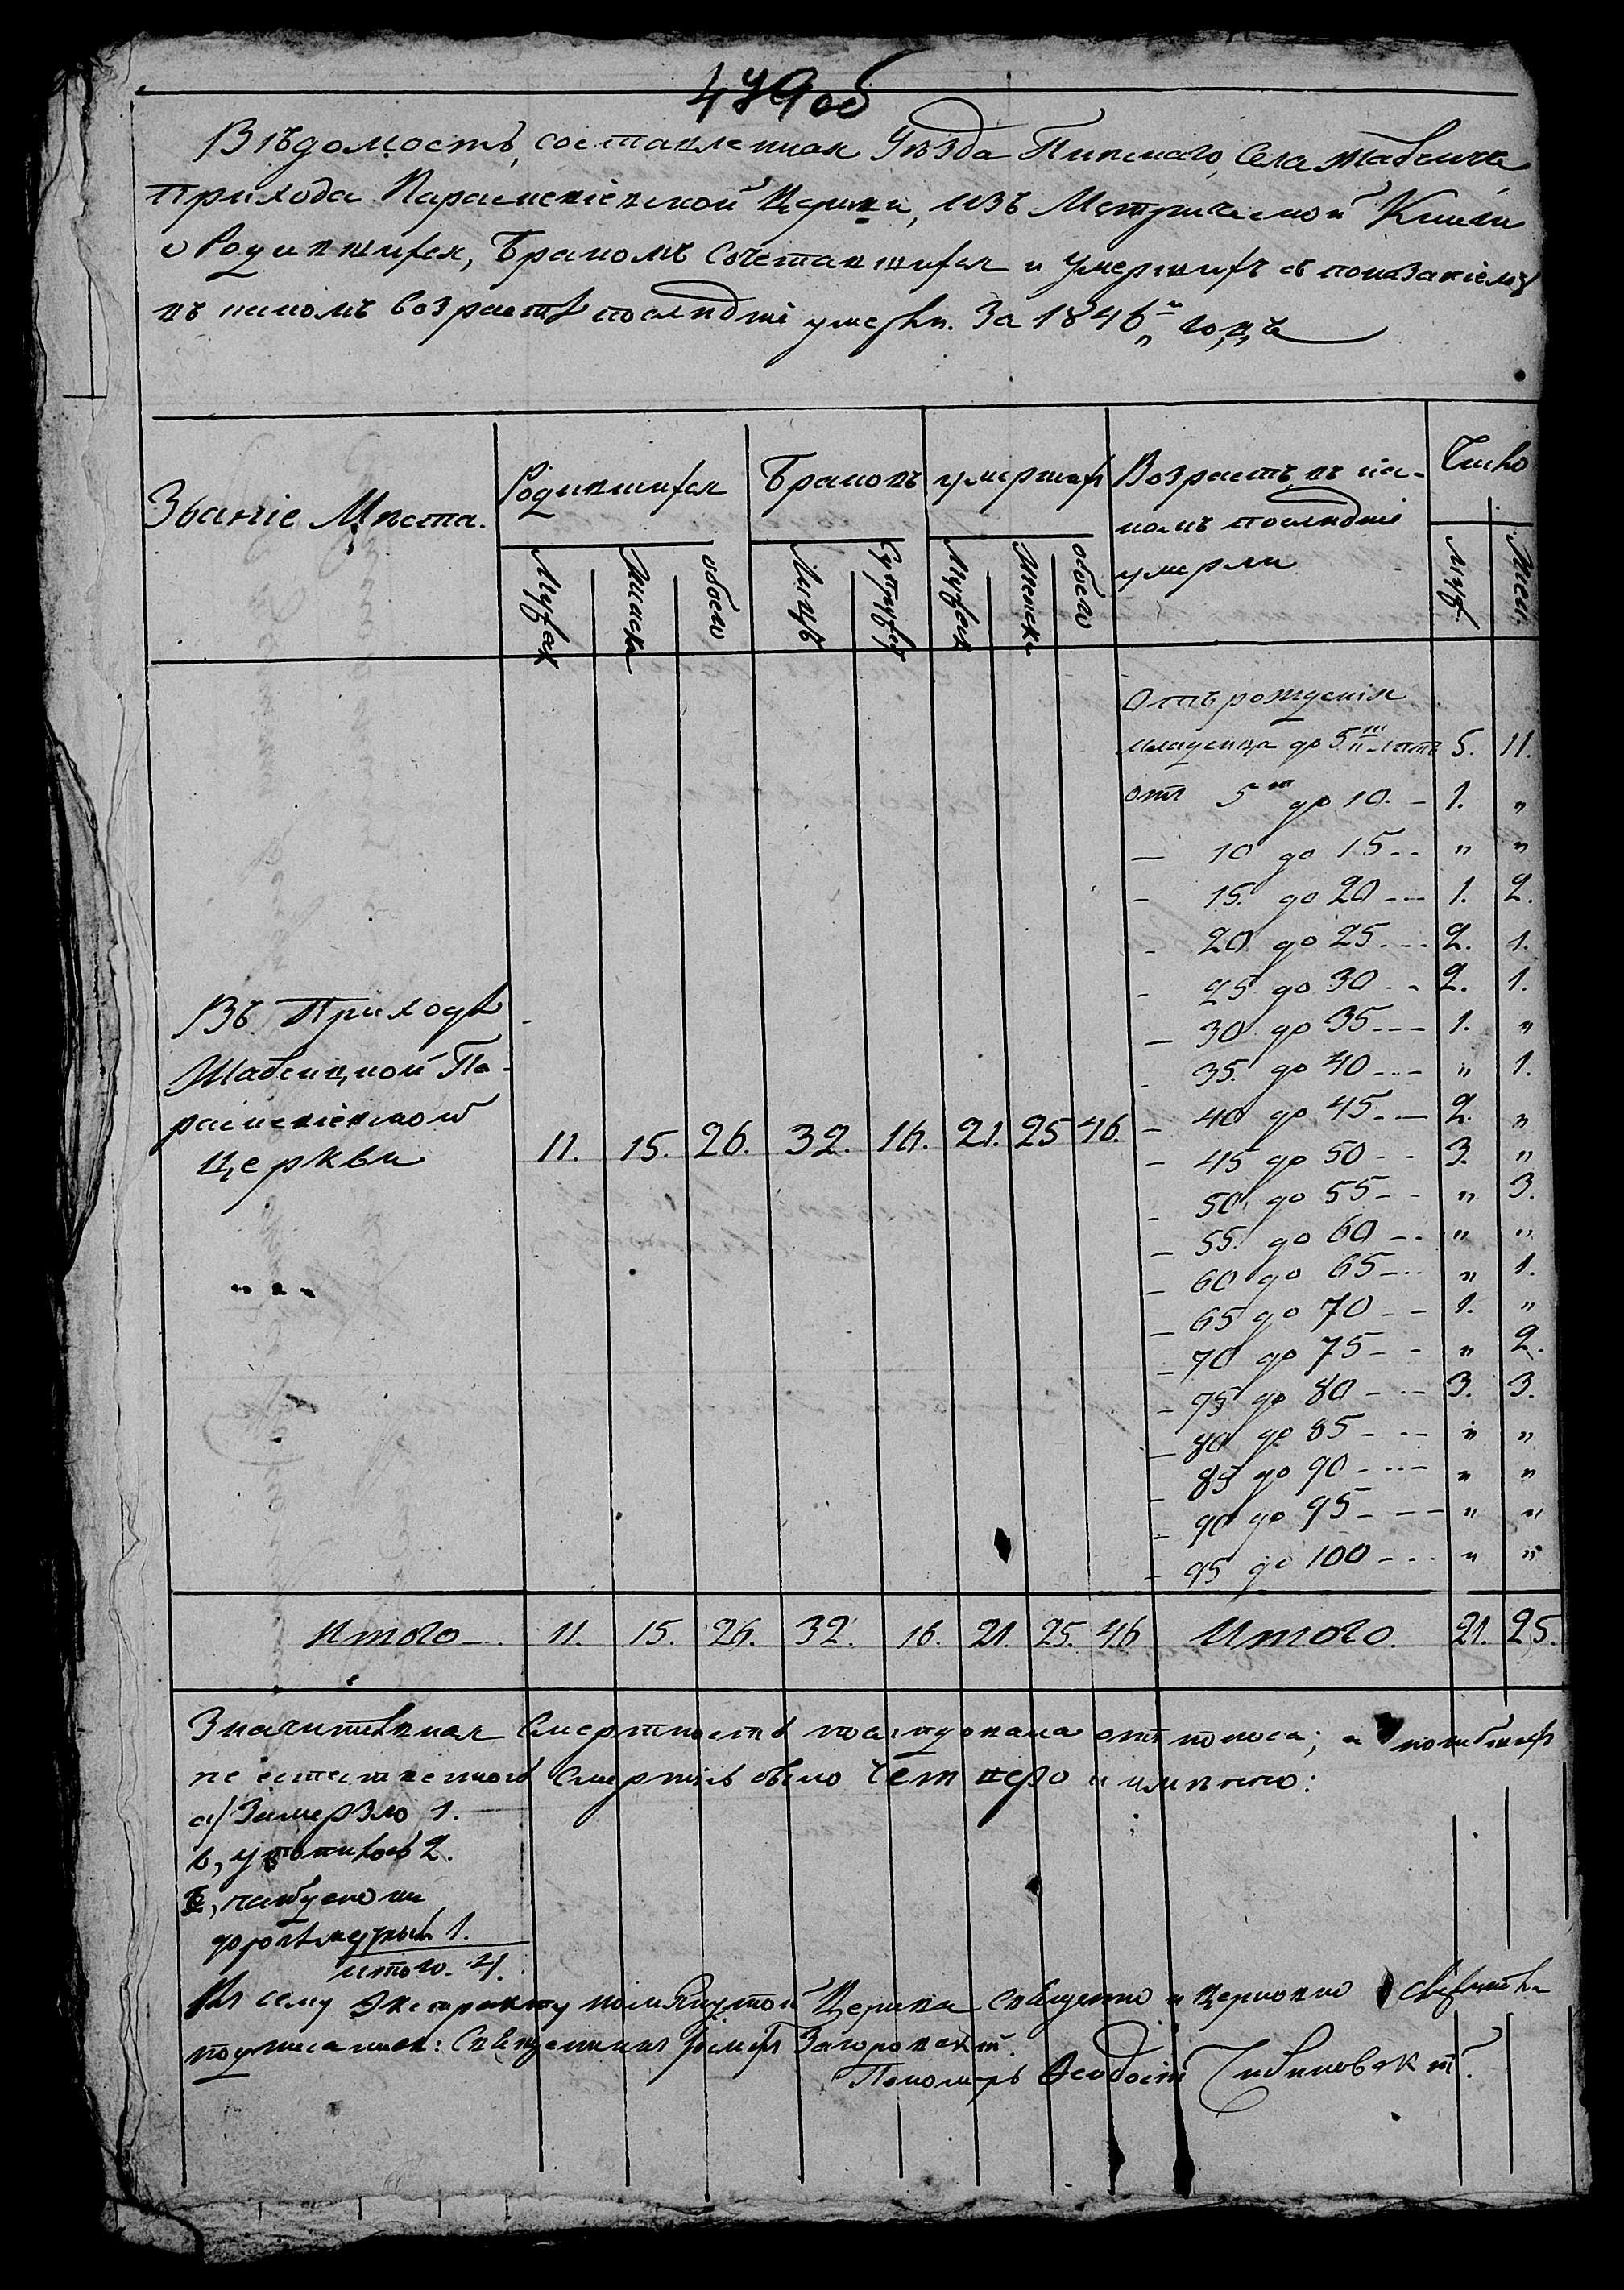 479об
Вѣдомость, составленная Уѣзда Пинскаго, Села
Прихода Параскевіевской Церкви, изъ Метрической Книги
о Родившихся, Бракомъ Сочетавшихся и Умершихъ съ показаніемъ
въ какомъ возрастѣ послѣдніе умерли. За 1846й годъ
Званіе Мѣста. Родившихся Браковъ умершихъ Возрастъ въ ка- Число
комъ послѣдніе
умерли
Мужеск Женска обоего Лицъ Супруж Мужеск Женска обоего Муж. Жен.
Отъ рожденія
младенца до 5 лѣтъ 5. 11.
отъ 5ти до 10. - 1. "
— 10 до 15 - - " "
- 15. до 20 - - - 1. 2.
- 20 до 25 - - - 2. 1.
- 25 до 30 - - 2. 1.
— 30 до 35 - - - 1. "
- 35. до 40 - - - " 1.
- 40 до 45 - - - 2. "
- 45 до 50 - - 3. "
- 50. до 55 - - " 3.
- 55. до 60 - - " "
- 60 до 65 - - - " 1.
- 65 до 70 - - 1. "
- 70 до 75 - - " 2.
- 75 до 80 - - - 3. 3.
- 80 до 85 - - - " "
- 85 до 90 - - - - " "
- 90 до 95 - - - " "
- 95 до 100 - - - " "
Въ Приходѣ
Па-
раскевіевской
Церкви
11. 15. 26. 32. 16. 21. 25 46.
Итого 11. 15. 26. 32. 16. 21. 25. 46 Итого. 21. 25.
Значительная Смертность послѣдовала отъ поноса; а погибшихъ
не естественною Смертію было Четверо и именно:
а) Замерзло 1.
утопилось 2.
найдено на
дорогѣ 1.
итого. 4.
Къ сему Экстракту Церкви Священно и Церковно
подписались: Священникъ
Пономарь Ѳеодосій